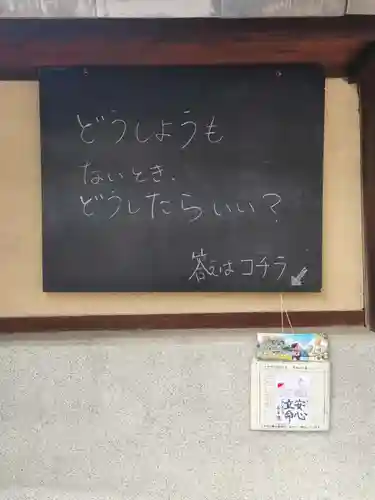 どうしようも
ないとき、
どうしたらいい?
答えはコチラ
安心
立命